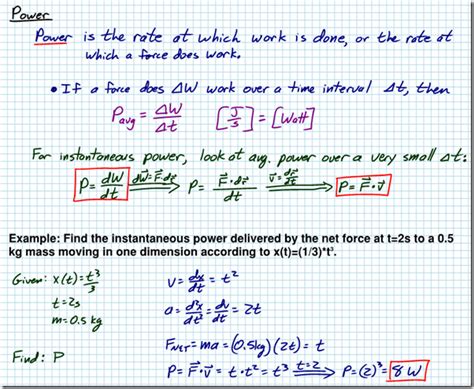 Power
Power is the rate at which work is done, or the rate at
which a force does work.
• If a force does ΔW work over a time interval Δt, then
P_avg = ΔW/Δt [J/s] = [Watt]
For instantaneous power, look at avg. power over a very small Δt:
P = dW/dt dW=F⃗·dr⃗ ⟹ P = F⃗·dr⃗/dt v⃗=dr⃗/dt ⟹ P = F⃗·v⃗
Example: Find the instantaneous power delivered by the net force at t=2s to a 0.5
kg mass moving in one dimension according to x(t)=(1/3)*t³.
Given: x(t) = t³/3
t = 2s
m = 0.5 kg
Find: P
v = dx/dt = t²
a = d²x/dt² = dv/dt = 2t
F_NET = ma = (0.5kg)(2t) = t
P = F⃗·v⃗ = t·t² = t³ t=2 ⟹ P = (2)³ = 8 W